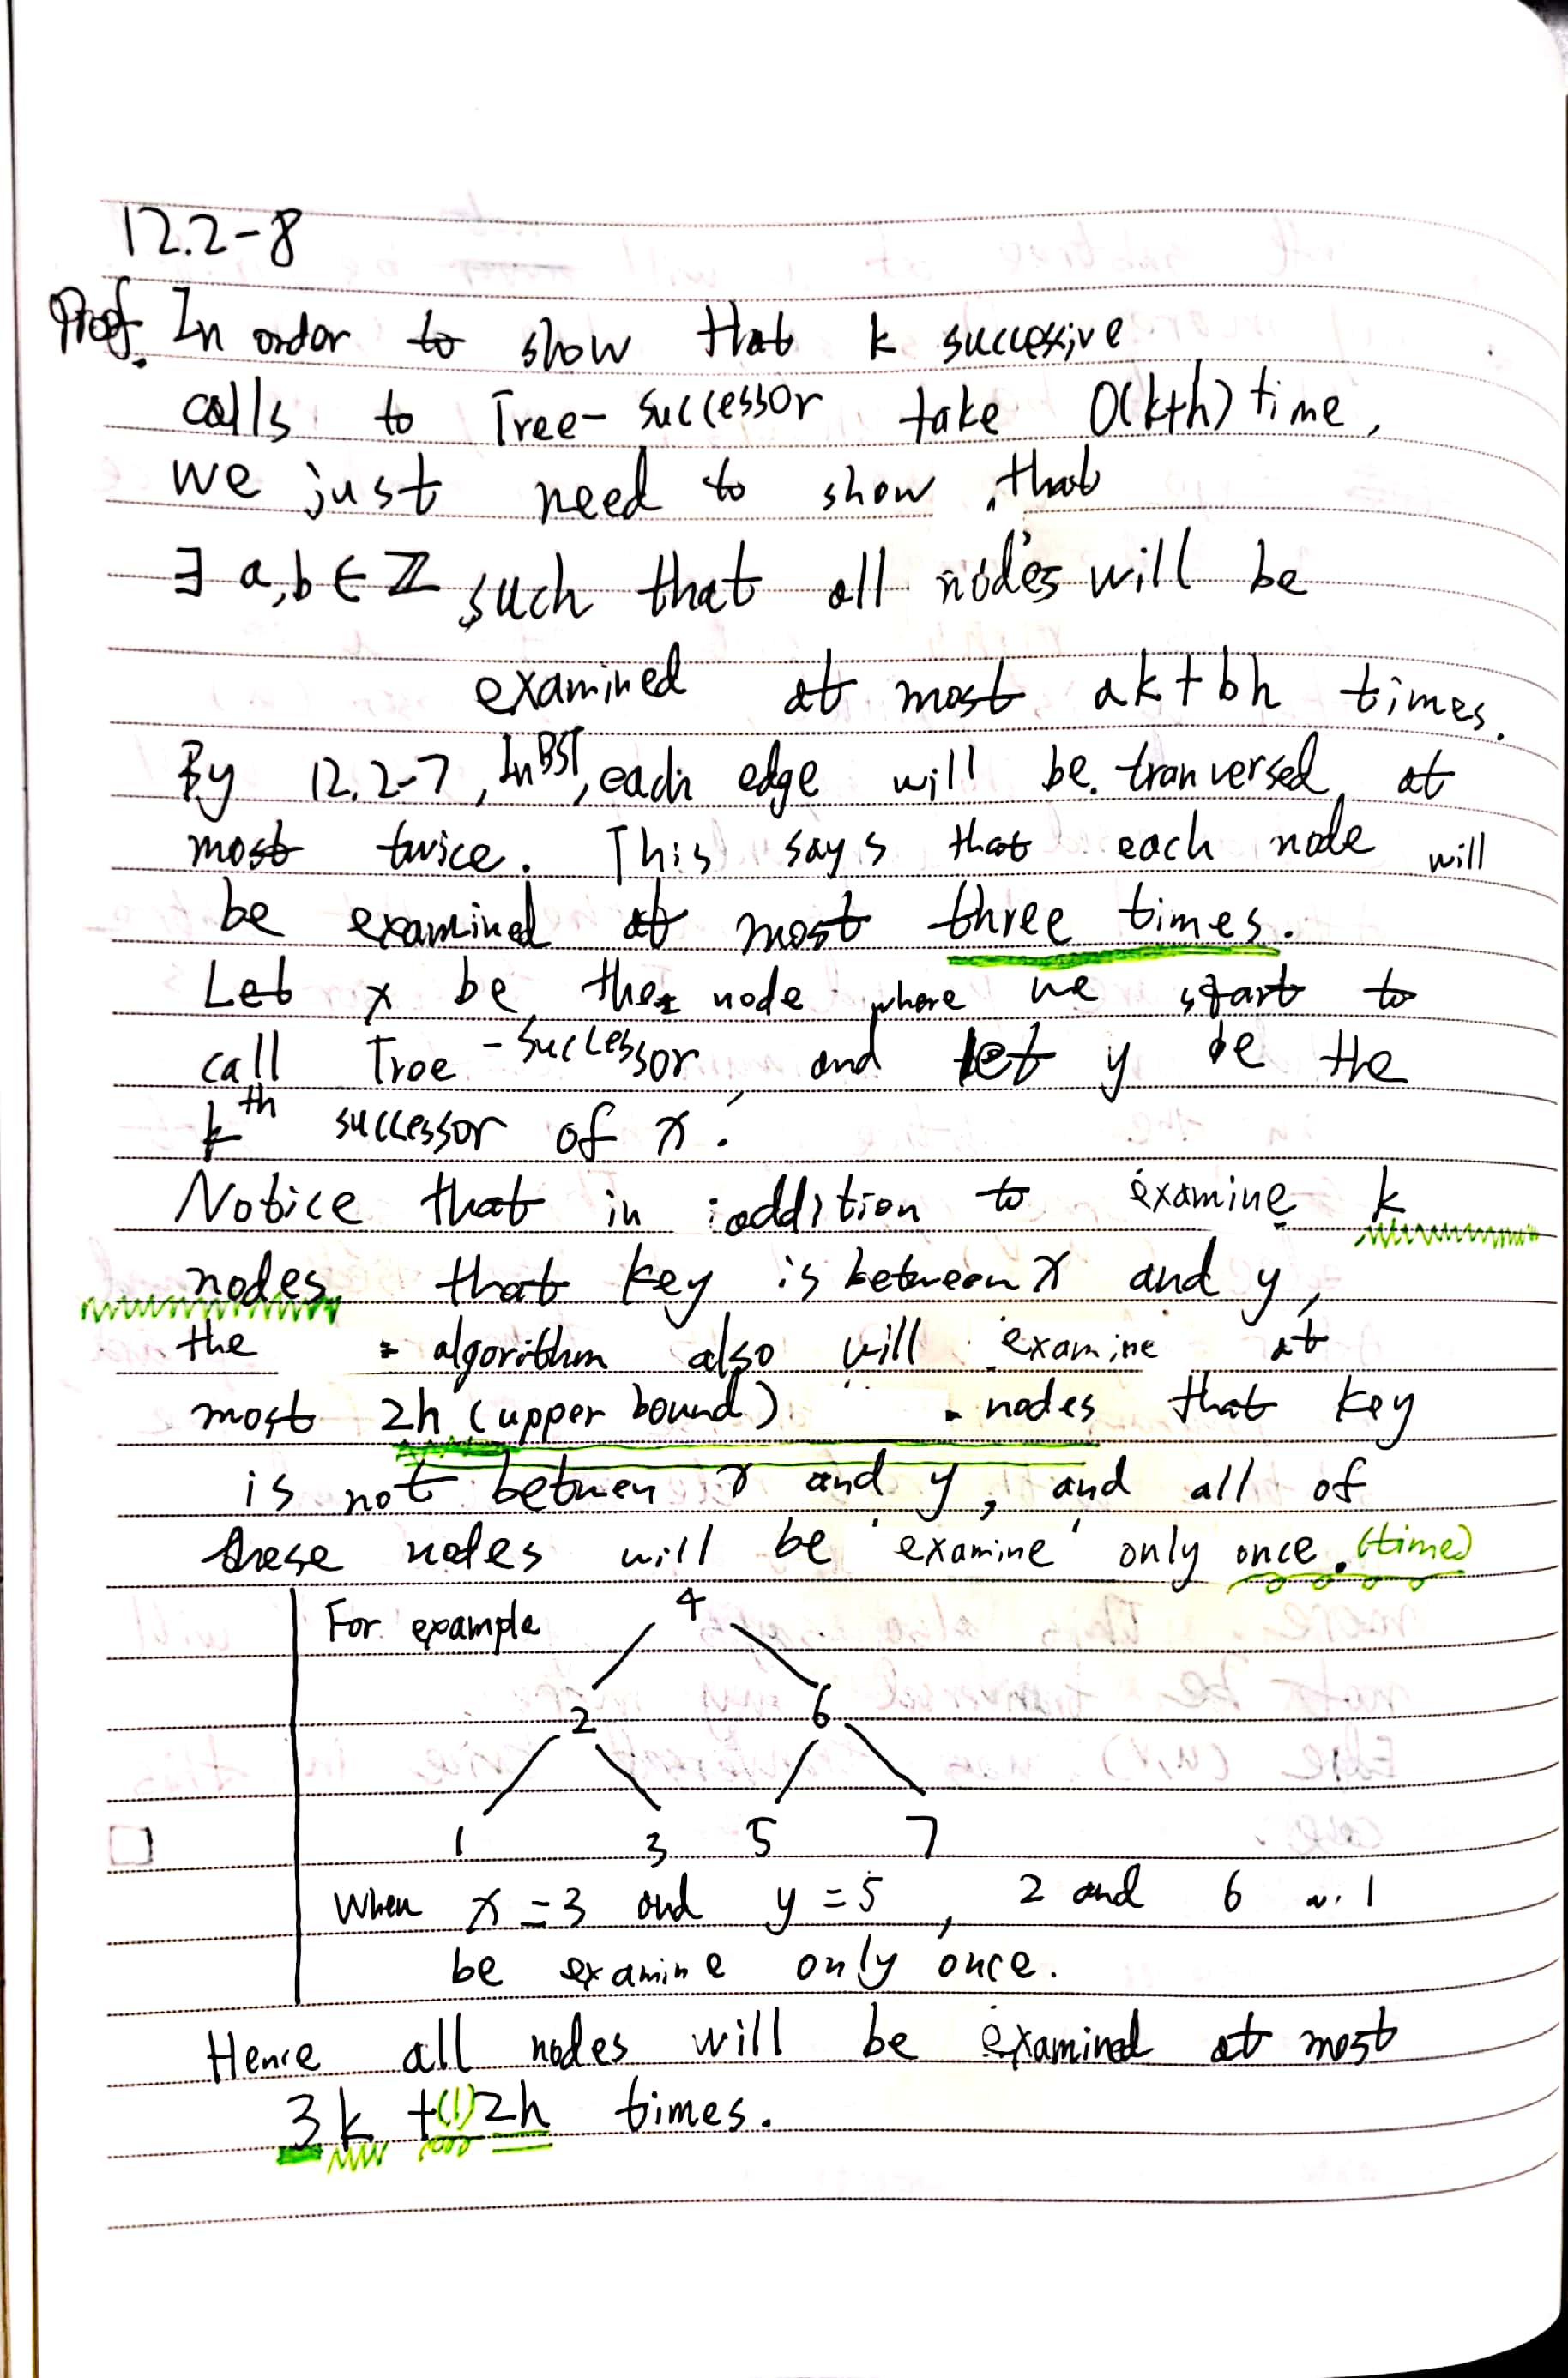 12.2-8
Proof. In order to show that k successive
calls to Tree-Successor take O(k+h) time,
we just need to show that
∃ a,b ∈ ℤ such that all nodes will be
examined at most ak+bh times.
By 12.2-7, In BST, each edge will be tranversed at
most twice. This says that each node will
be examined at most three times.
Let x be the node where we start to
call Tree-Successor, and let y be the
kth successor of x.
Notice that in addition to examine k
nodes that key is between x and y,
the algorithm also will examine at
most 2h (upper bound) nodes that key
is not between x and y, and all of
these nodes will be examine only once. (time)
For example
4
2 6
1 3 5 7
When x=3 and y=5, 2 and 6 will
be examine only once.
Hence all nodes will be examined at most
3k +(1)2h times.